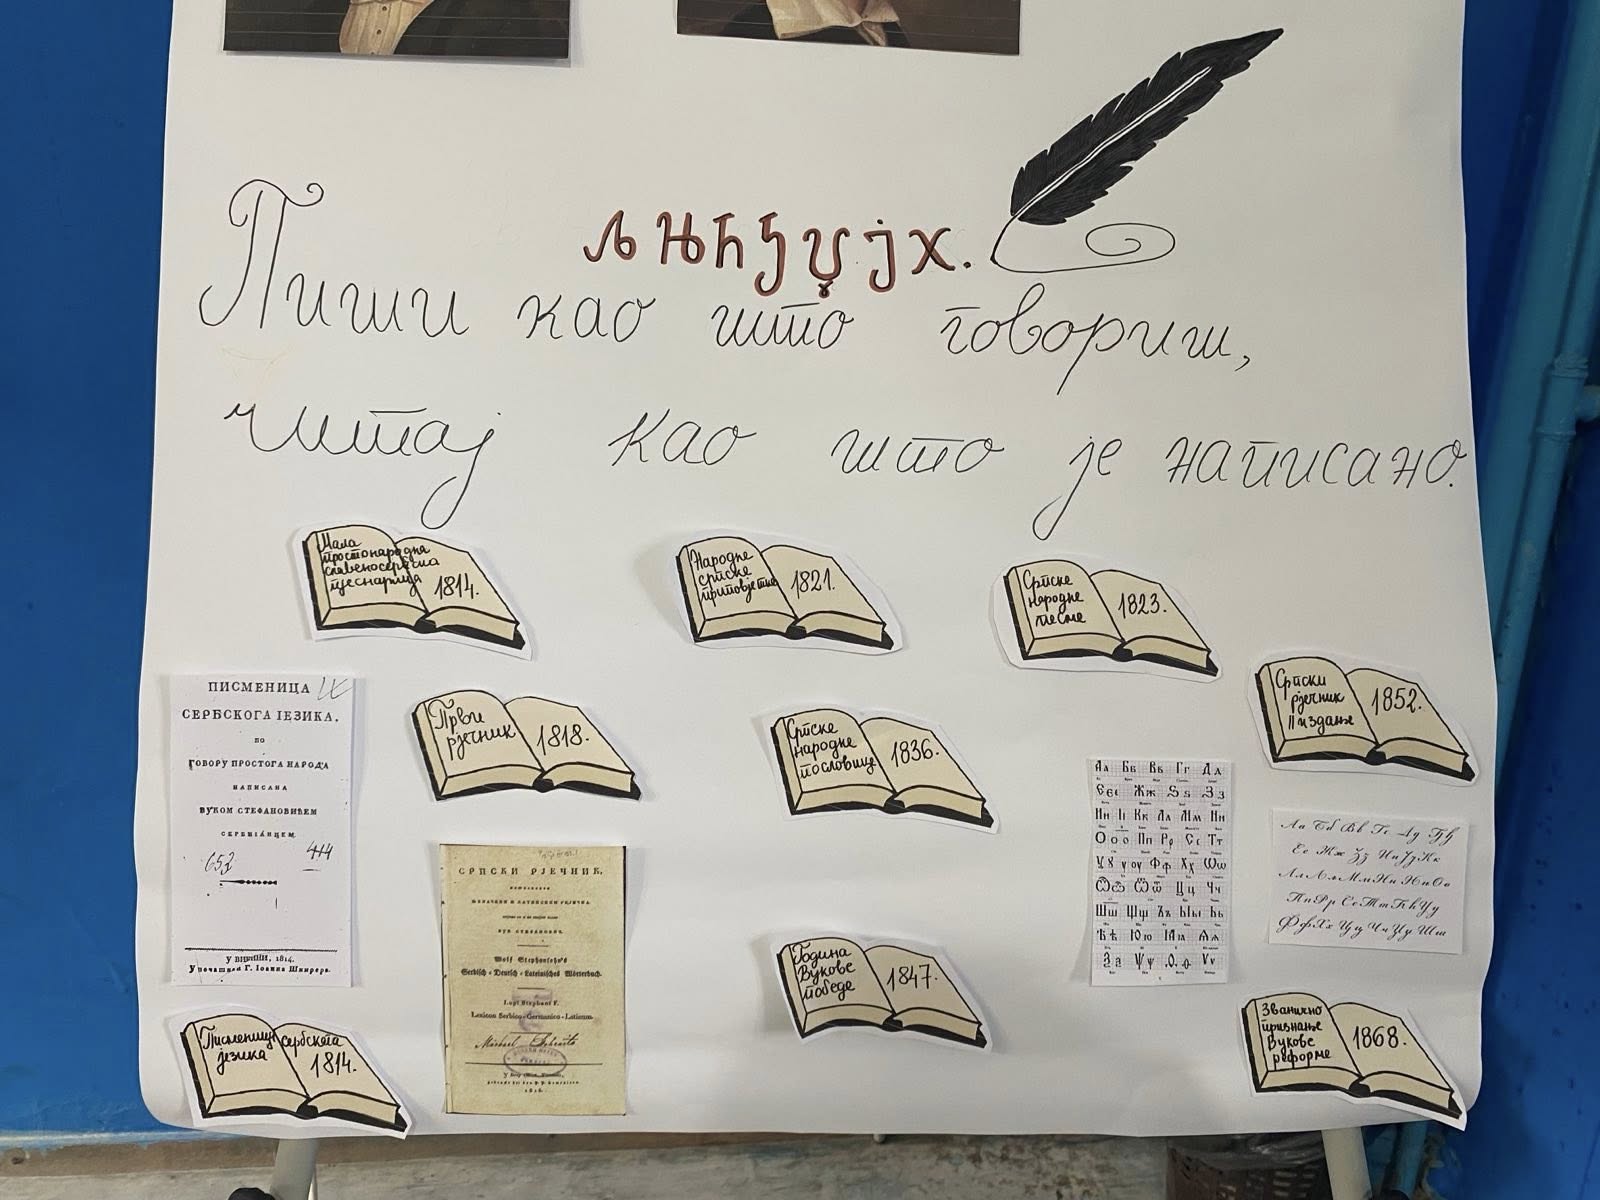 љњћђџјх.
Пиши као што говориш,
читај као што је написано.
Мала
простонародна
славеносербска
пјеснарица
1814.
Народне
српске
приповјетке
1821.
Српске
народне
песме
1823.
Српски
рјечник
II издање
1852.
Први
рјечник
1818.
Српске
народне
пословице
1836.
ПИСМЕНИЦА
СЕРБСКОГА ІЕЗИКА.
ПО
ГОВОРУ ПРОСТОГА НАРОДА
НАПИСАНА
ВУКОМ СТЕФАНОВИЋЕМ
СЕРБІАНЦЕМ
653
414
У ВІЕННИ, 1814.
У печатнѣ Г. Іоанна Шнирера.
СРПСКИ РЈЕЧНИК,
ИСТОЛКОВАН
ЊЕМАЧКИМ И ЛАТИНСКИМ РИЈЕЧМА.
ВУК СТЕФАНОВИЋ.
Wolf Stephansohn's
Serbisch-Deutsch-Lateinisches Wörterbuch.
Lupi Stephani F.
Lexicon Serbico-Germanico-Latinum.
1818.
Аа Бб Вв Гг Дд
Єєє Жж Ѕѕ Зз
Ии Іі Кк Лл Мм Нн
Ооо Пп Рр Сс Тт
Фф Хх Ѡѡ
Цц Чч
Шш Щщ Ъъ Ыы Ьь
Ѣѣ Юю Ѧѧ
Ѯѯ Ѱѱ Ѳѳ Ѵѵ
Аа Бб Вв Гг Дд Ђђ
Ее Жж Зз Ии Јј Кк
Лл Љљ Мм Нн Њњ Оо
Пп Рр Сс Тт Ћћ Уу
Фф Хх Цц Чч Џџ Шш
Година
Вукове
победе
1847.
Писменица сербскога
језика 1814.
Званично
признање
Вукове
реформе
1868.